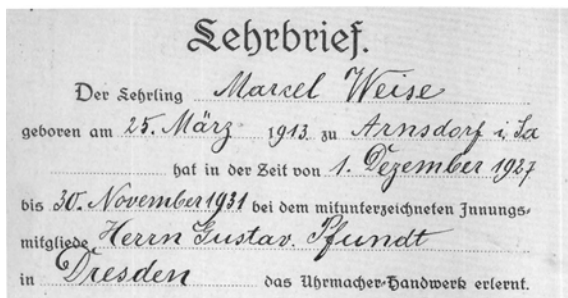 Lehrbrief.
Der Lehrling Marcel Weise
geboren am 25. März 1913 zu Arnsdorf i. Sa
hat in der Zeit von 1. Dezember 1927
bis 30. November 1931 bei dem mitunterzeichneten Innungs-
mitgliede Herrn Gustav. Pfundt
in Dresden das Uhrmacher-Handwerk erlernt.